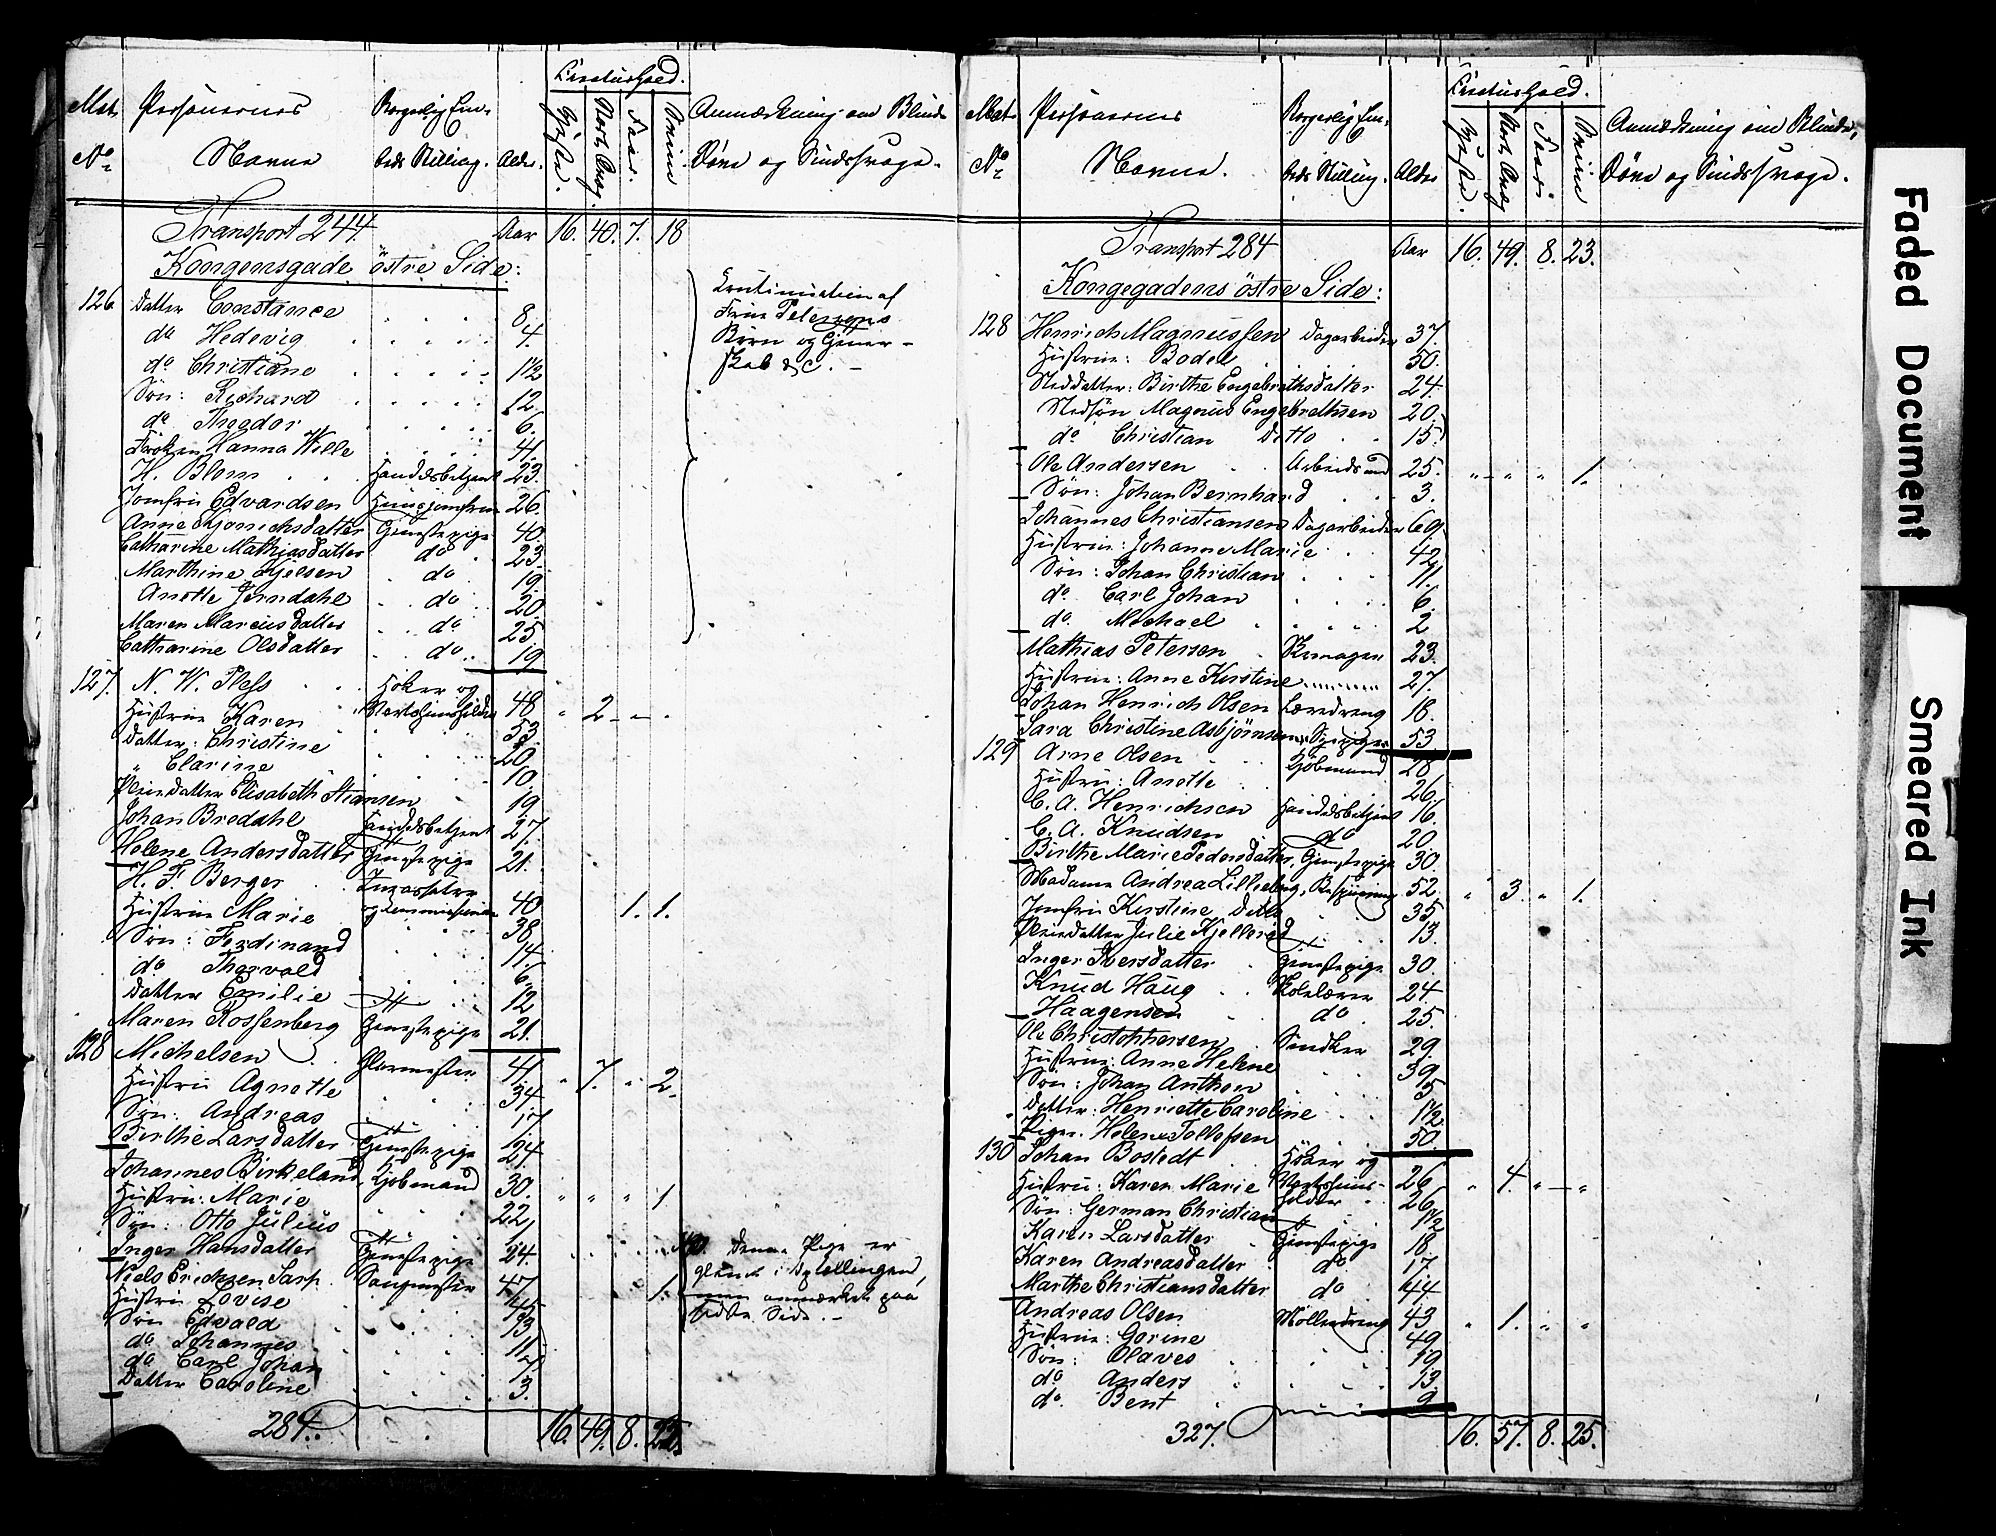 Mat. Personernes Borgerlig Em- Creaturhold. Anmærkning om Blinde
No Navne beds Stilling. Alder. Heste. Stort Qvæg Faar. Sviin Døve og Sindssvage.
Transport 244. Aar 16. 40. 7. 18
Kongensgade østre Side:
126. Datter Constance 8.
do Hedevig 4.
do Christiane 1½
Søn: Richard 12.
do Theodor 6.
Continuation af
Børn og
skab &c. -
Frøken Hanna Wille 41.
H. Blom Handelsbetjent 23.
Jomfru Edvardsen Huusjomfru 26.
Anne Gjonichsdatter Tjenestepige 40.
Catharine Mathiasdatter do 23.
Marthine Gjelsen do 19.
Anette Jerndahl do 20.
Maren Marcusdatter do 25.
Catharine Olsdatter do 19
127. N. W. Pless Høker og
Værtshuusholder 48 " 2 - - "
Hustru Karen 53.
Datter: Christine 20.
" Clarine 10.
Pleiedatter Elisabeth Stiansen 19.
Johan Bredahl Handelsbetjent 27.
Helene Andersdatter Tjenestepige 21.
H. F. Berger
40 1. 1.
Hustru Marie 38.
Søn: Ferdinand 14.
do Thorvald 6.
Datter Emilie 12
Maren Rossenberg Tjenestepige 21.
128 Michelsen Glarmester 41. " 7. " 2.
Hustru Agnette 34.
Søn: Andreas 17.
Birthe Larsdatter Tjenestepige 24.
Johannes Birkeland Kjøbmand 30. " " " 1
Hustru: Marie 22.
Søn: Otto Julius 1
Inger Hansdatter Tjenestepige 24.
NB. Denne Pige er
glemt i Optællingen,
men anmærket paa
sidste Side. -
Niels Erichsen Sarp. 47 1.
Hustru Lovise 45
Søn Edvald 13
do Johannes 11.
do Carl Johan 7.
Datter Caroline 3.
284. 16. 49. 8. 23.
Mat. Personernes Borgerlig Em- Creaturhold. Anmærkning om Blinde,
No Navne. beds Stilling. Alder Heste. Stort Qvæg Faar Sviin Døve og Sindssvage.
Transport 284 Aar 16. 49. 8. 23.
Kongegadens østre Side:
128 Henrich Magnussen Dagarbeider 37.
Hustru: Bodel 50.
Steddatter: Birthe Engebrethsdatter 24.
Stedsøn Magnus Engebrethsen 20.
do Christian Ditto 15.
Ole Andersen Arbeidsmd 25. " - " " 1.
Søn: Johan Bernhard 3.
Johannes Christiansen Dagarbeider 69.
Hustru: Johanne Marie 42.
Søn: Johan Christian 11.
do Carl Johan 6.
do. Michael 2
Mathias Petersen Skomager 23.
Hustru: Anne Kirstine 27.
Johan Henrich Olsen Læredreng 18.
Sara Christine Asbjørnsen Sypige 53
129 Arne Olsen Kjøbmand 28
Hustru: Anette 26.
C. A. Henrichsen Handelsbetjent 16.
C. A. Knudsen do 20.
Birthe Marie Pedersdatter, Tjenestepige 30.
Madame Andrea Lillieberg, Bespiisning 52. " 3. " 1.
Jomfru Kirstine Ditto 35.
Pleiedatter Julie Kjellerød 13.
Inger Iversdatter Tjenestepige 30.
Knud Haug Skolelærer 24.
Haagensen do 25.
Ole Christophersen Snedker 29.
Hustru: Anne Helene 39.
Søn: Johan Anthon 5
Datter: Henriette Caroline 1½
Pige: Helene Tollefsen 50.
130 Johan Bostedt Høker og
Værtshuus- 26 " 4. " - "
Hustru: Karen Marie holder 26
Søn: German Christian 1½
Karen Larsdatter Tjenestepige 18.
Karen Andreasdatter do 17.
Marthe Christiansdatter do 44
Andreas Olsen Mølledreng 43 " 1. " "
Hustru: Gorine 49.
Søn: Olaves 19.
do Anders 13.
do. Bent 9.
327. 16. 57. 8. 25.
Faded Document
Smeared Ink